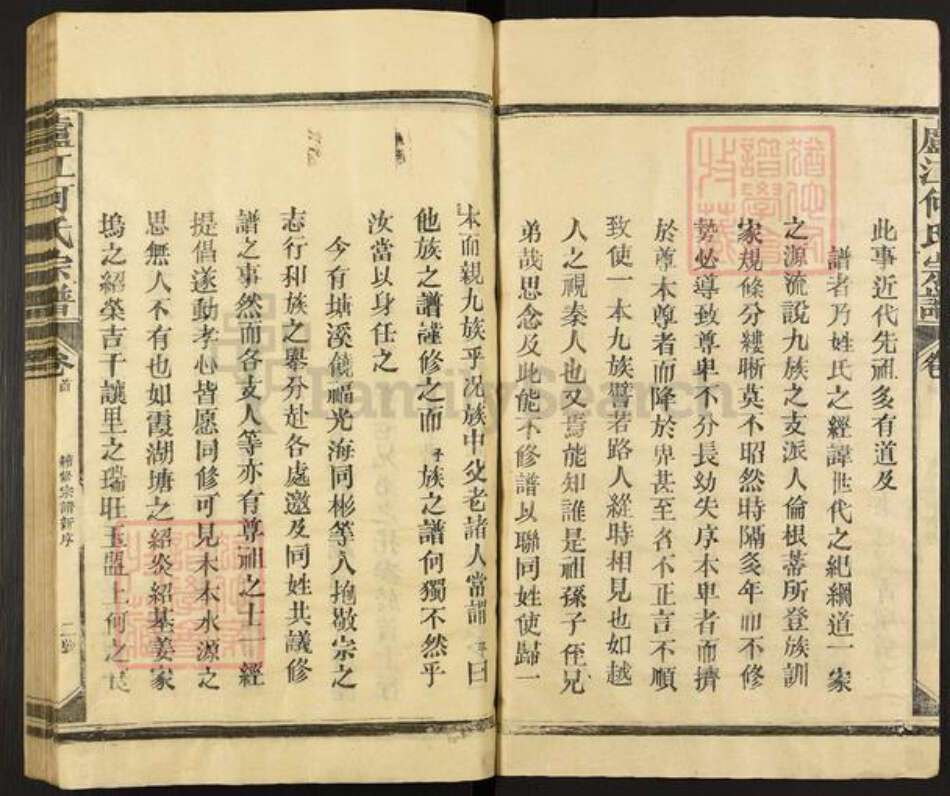 廬江何氏宗譜
卷
此事近代先祖多有道及
譜者乃姓氏之經諱世代之紀綱道一家
之源流說九族之支派人倫根蒂所登族訓
家規條分縷晰莫不昭然時隔多年而不修
勢必導致尊卑不分長幼失序本卑者而擠
於尊本尊者而降於卑甚至名不正言不順
致使一本九族譬若路人縱時相見也如越
人之視秦人也又焉能知誰是祖孫子侄兄
弟哉思念及此能不修譜以聯同姓使歸一
本而親九族乎況族中父老諸人常謂予曰
他族之譜謹修之而予族之譜何獨不然乎
汝當以身任之
今有塘溪饒福光海同彬等人抱敬宗之
志行和族之舉分赴各處邀及同姓共議修
譜之事然而各支人等亦有尊祖之士一經
提倡遂動孝心皆愿同修可見木本水源之
思無人不有也如霞湖塘之紹炎紹基姜家
塢之紹榮吉干讓里之瑞旺玉盟上何之
廬江何氏宗譜
卷首
續修宗譜新序
FamilySearch